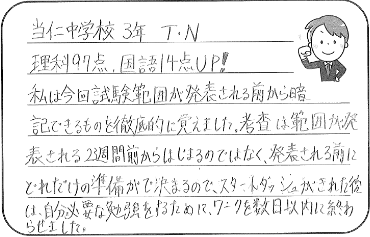 当仁中学校 3年 T・N
理科97点、国語14点UP!
私は今回試験範囲が発表される前から暗
記できるものを徹底的に覚えました。考査は範囲が発
表される2,3週間前からはじまるのではなく、発表される前に
どれだけの準備がで決まるので、スタートダッシュがきれた後
は、自分必要な勉強をするために、ワークを数日以内に終わ
らせました。